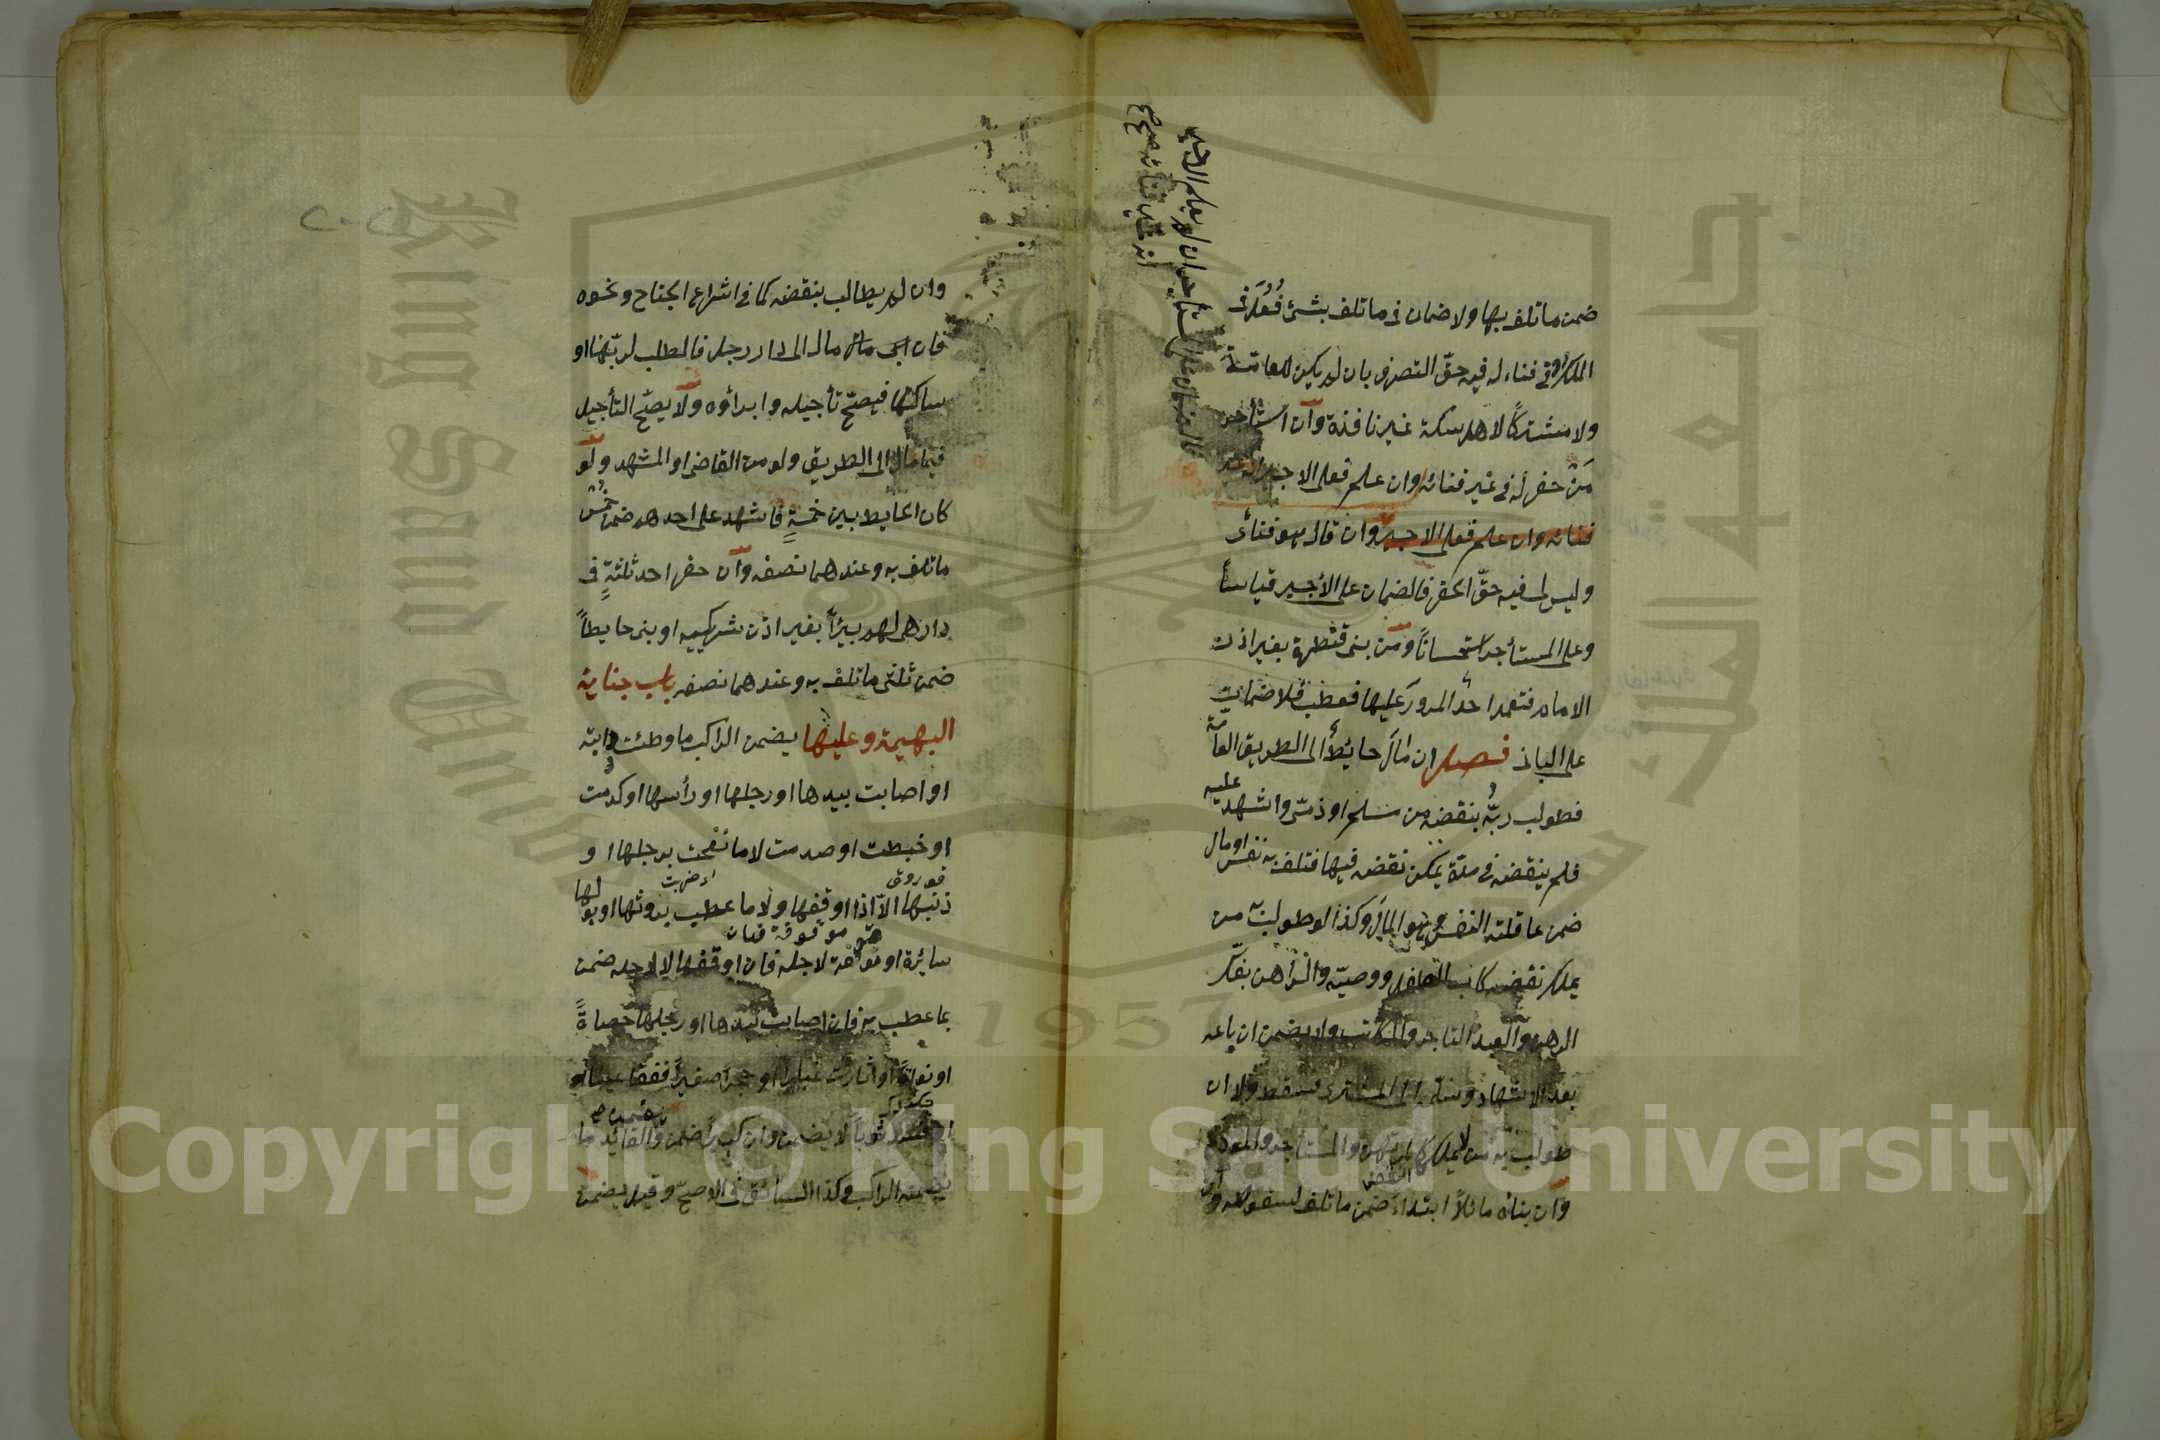 ضمن ما تلف بها ولا ضمان فى ما تلف بشئ فُعُل فى
الملك او فى فناء له فيه حقّ التصرف بان لم يكن للعامّة
ولا مشتركًا لاهل سكة غير نافذة وان استأجر
مَن حفر له فى غير فنائه وان علم فعلى الاجير
فنائه وان علم فعلى الاجير وان قال هو فنائى
وليس لى فيه حقّ الحفر فالضمان على الأجير قياساً
وعلى المستأجر استحساناً ومن بنى قنطرة بغير اذن
الامام فتعمد احدٌ المرورَ عليها فعطب فلا ضمان
على البانى فصل ان مال حائط الى الطريق العامّة
فطولب ربّه بنقضه من مسلم او ذمىّ واشهد عليه
فلم ينقضه فى مدّة يمكن نقضه فيها فتلف به نفس او مال
ضمن عاقلته النفس وهو المال وكذا لو طولب به من
يملك نقضه كاب الطفل ووصيّه والراهن بفكّ
الرهن والعبد التاجر والمكاتب ولا يضمن ان باعه
بعد الاشهاد وسلمه الى المشترى فسقط ولا ان
طولب به من لا يملك كالمرتهن والمستأجر والمودع
وان بناه مائلاً ابتداءً ضمن ما تلف لسقوطه وان
على المستأجر ان لم يعلم الاجير
انه غير فنائه صح صح
وان لم يطالب بنقضه كما فى اشراع الجناح ونحوه
فان مال الى دار رجل فالطلب لربّها او
ساكنها فيصحّ تأجيله وابرأوه ولا يصحّ التأجيل
فيما مال الى الطريق ولو من القاضى او المشهد ولو
كان الحايط بين خمسةٍ فاشهد على احدهم ضمن خُمْسَ
ما تلف به وعندهما نصفه وان حفر احد ثلثةٍ فى
دار هى لهم بيراً بغير اذن شريكيه او بنى حايطاً
ضمن ثلثى ما تلف به وعندهما نصفه باب جناية
البهيمة وعليها يضمن الراكب ما وطئت دابته
او اصابت بيدها او رجلها او رأسها او كدمت
او خبطت او صدمت لا ما نفحت برجلها او
ذنبها الاّ اذا اوقفها ولا ما عطب بروثها او بولها
سائرة او موقوفة لاجله فان اوقفها لا لاجله ضمن
ما عطب به فان اصابت بيدها او رجلها حصاةً
او نواةً او اثارت غباراً او حجراً صغيراً ففقأ عيناً او
افسد ثوباً لا يضمن وان كبيراً ضمن والقائد ما
يضمنه الراكب وكذا السائق فى الاصحّ وقيل يضمن
1957
King Saud University
جامعة الملك سعود
Copyright © King Saud University